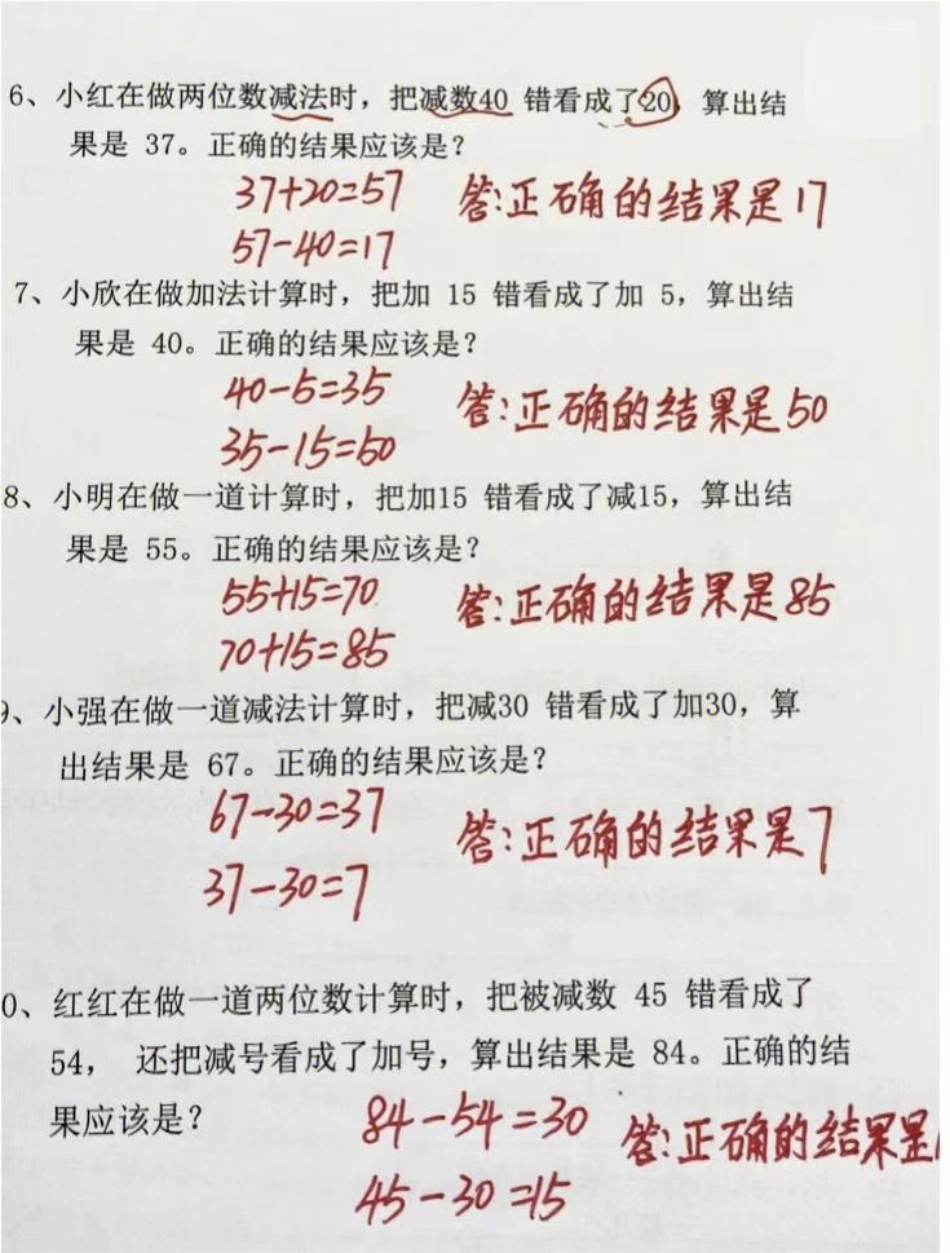 6、小红在做两位数减法时，把减数40 错看成了20，算出结
果是 37。正确的结果应该是？
37+20=57 答:正确的结果是17
57-40=17
7、小欣在做加法计算时，把加 15 错看成了加 5，算出结
果是 40。正确的结果应该是？
40-5=35 答:正确的结果是50
35-15=50
8、小明在做一道计算时，把加15 错看成了减15，算出结
果是 55。正确的结果应该是？
55+15=70 答:正确的结果是85
70+15=85
9、小强在做一道减法计算时，把减30 错看成了加30，算
出结果是 67。正确的结果应该是？
67-30=37 答:正确的结果是7
37-30=7
0、红红在做一道两位数计算时，把被减数 45 错看成了
54， 还把减号看成了加号，算出结果是 84。正确的结
果应该是？
84-54=30 答:正确的结果是
45-30=15